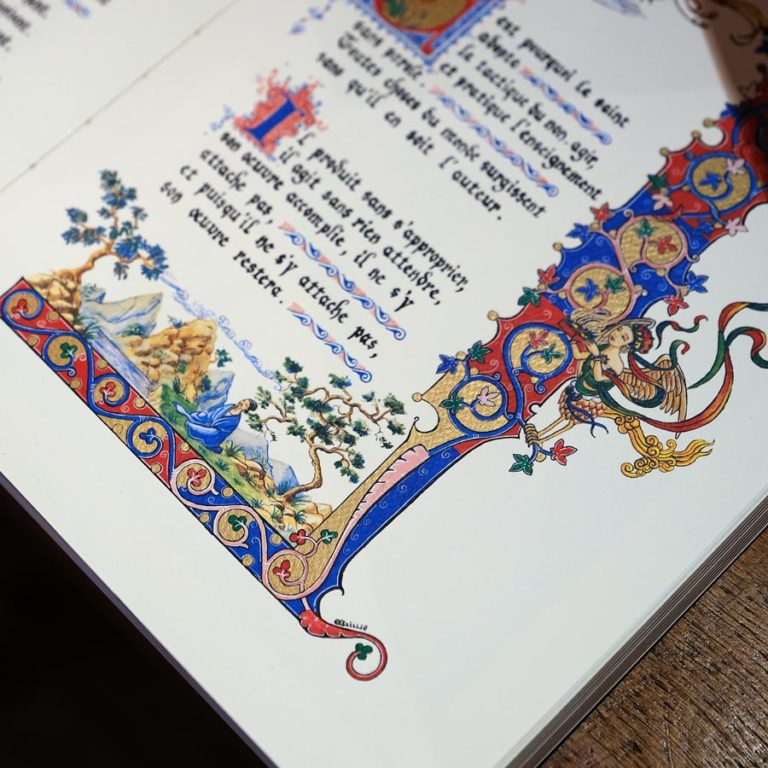 est pourquoi le saint
adopte
la tactique du non-agir,
et pratique l'enseignement
sans parole.
Toutes choses du monde surgissent
sans qu'il en soit l'auteur.
Il produit sans s'approprier,
il agit sans rien attendre,
son œuvre accomplie, il ne s'y
attache pas,
et puisqu'il ne s'y attache pas,
son œuvre restera.